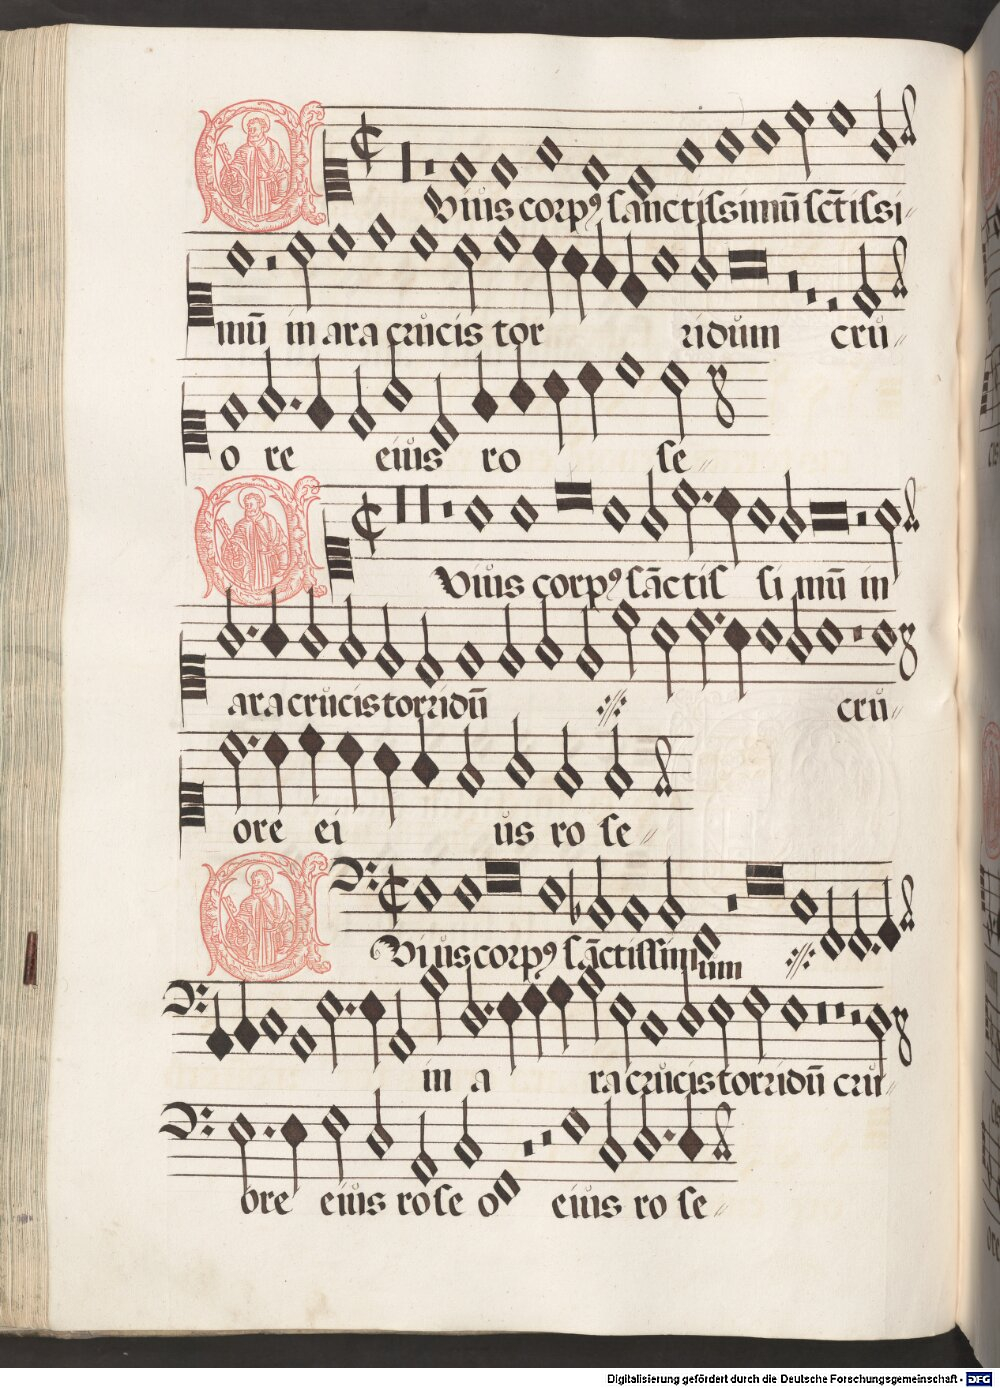 Cuius corpꝯ sanctissimū sctīssi
mū in ara crucis tor ridum cru
o re eius ro se
Cuius corpꝯ sāctis si mū in
ara crucis torridū cru
ore ei us ro se
Cuius corpꝯ sāctissim um
in a ra crucis torridū cru
ore eius rose o eius ro se
Digitalisierung gefördert durch die Deutsche Forschungsgemeinschaft - DFG